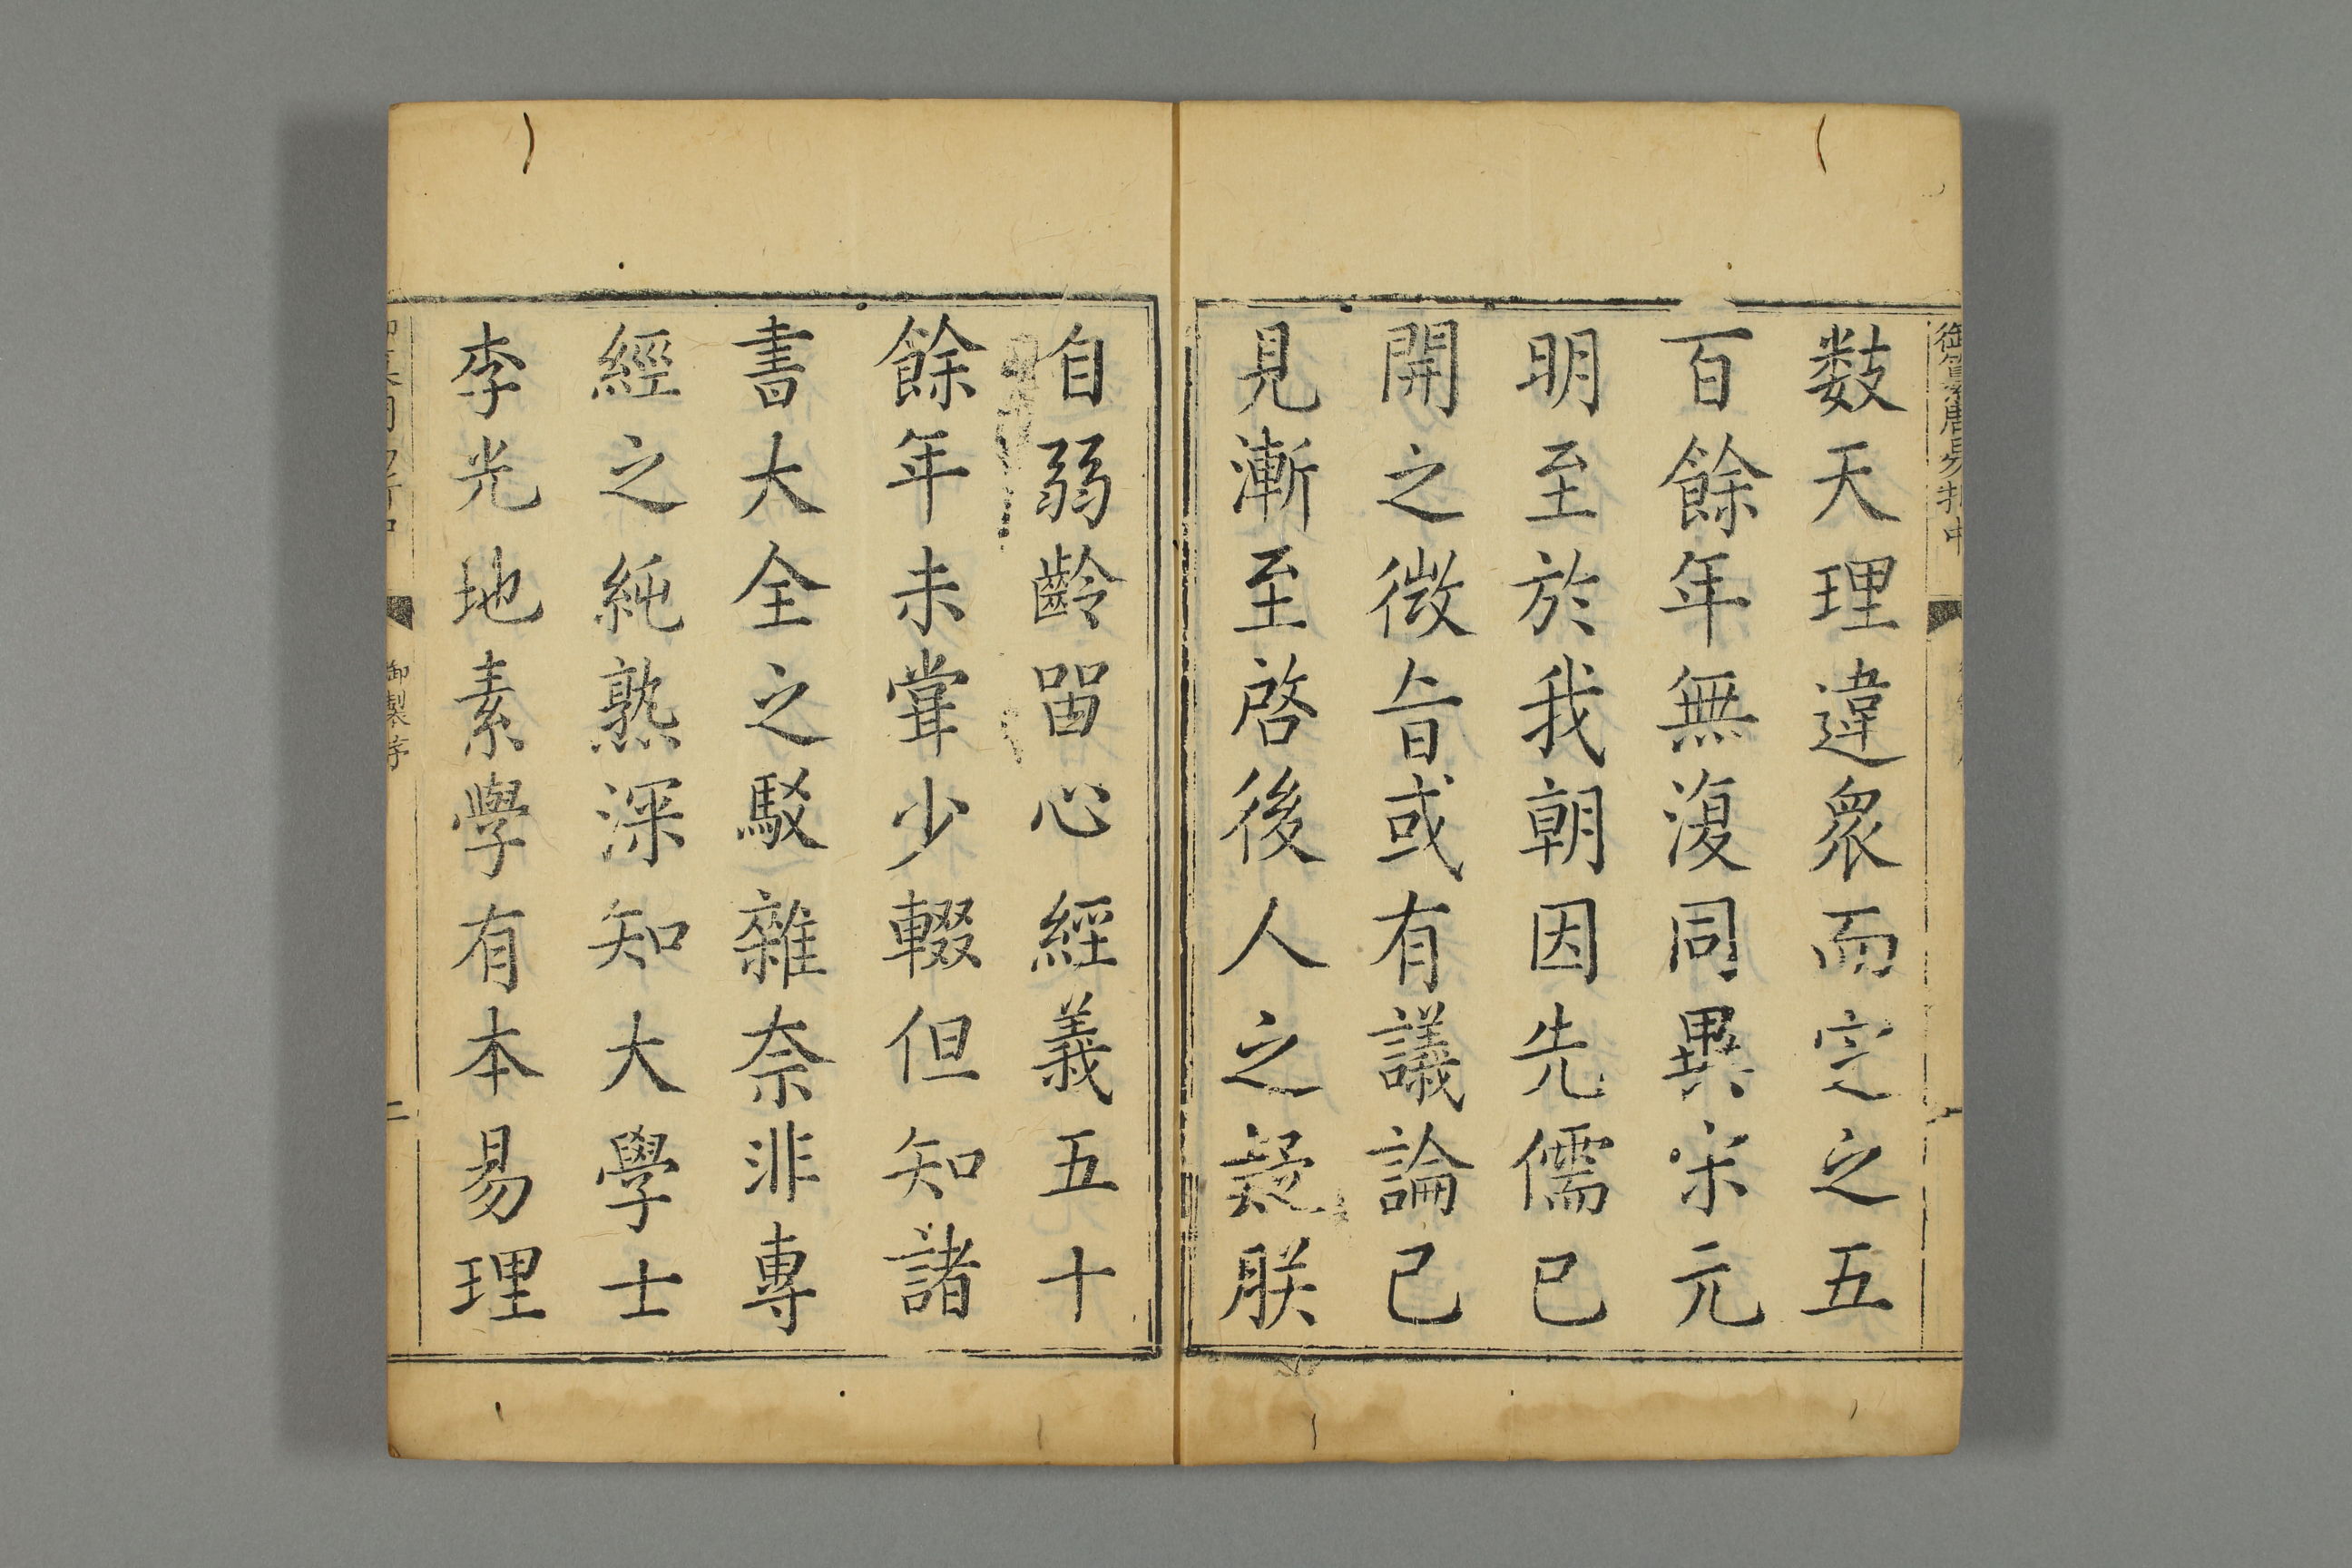 御纂周易折中
数天理違衆而定之五
百餘年無復同異宋元
明至於我朝因先儒已
開之微旨或有議論已
見漸至啓後人之疑朕
自弱齡留心經義五十
餘年未嘗少輟但知諸
書大全之駁雜奈非專
經之純熟深知大學士
李光地素學有本易理
御製序
二